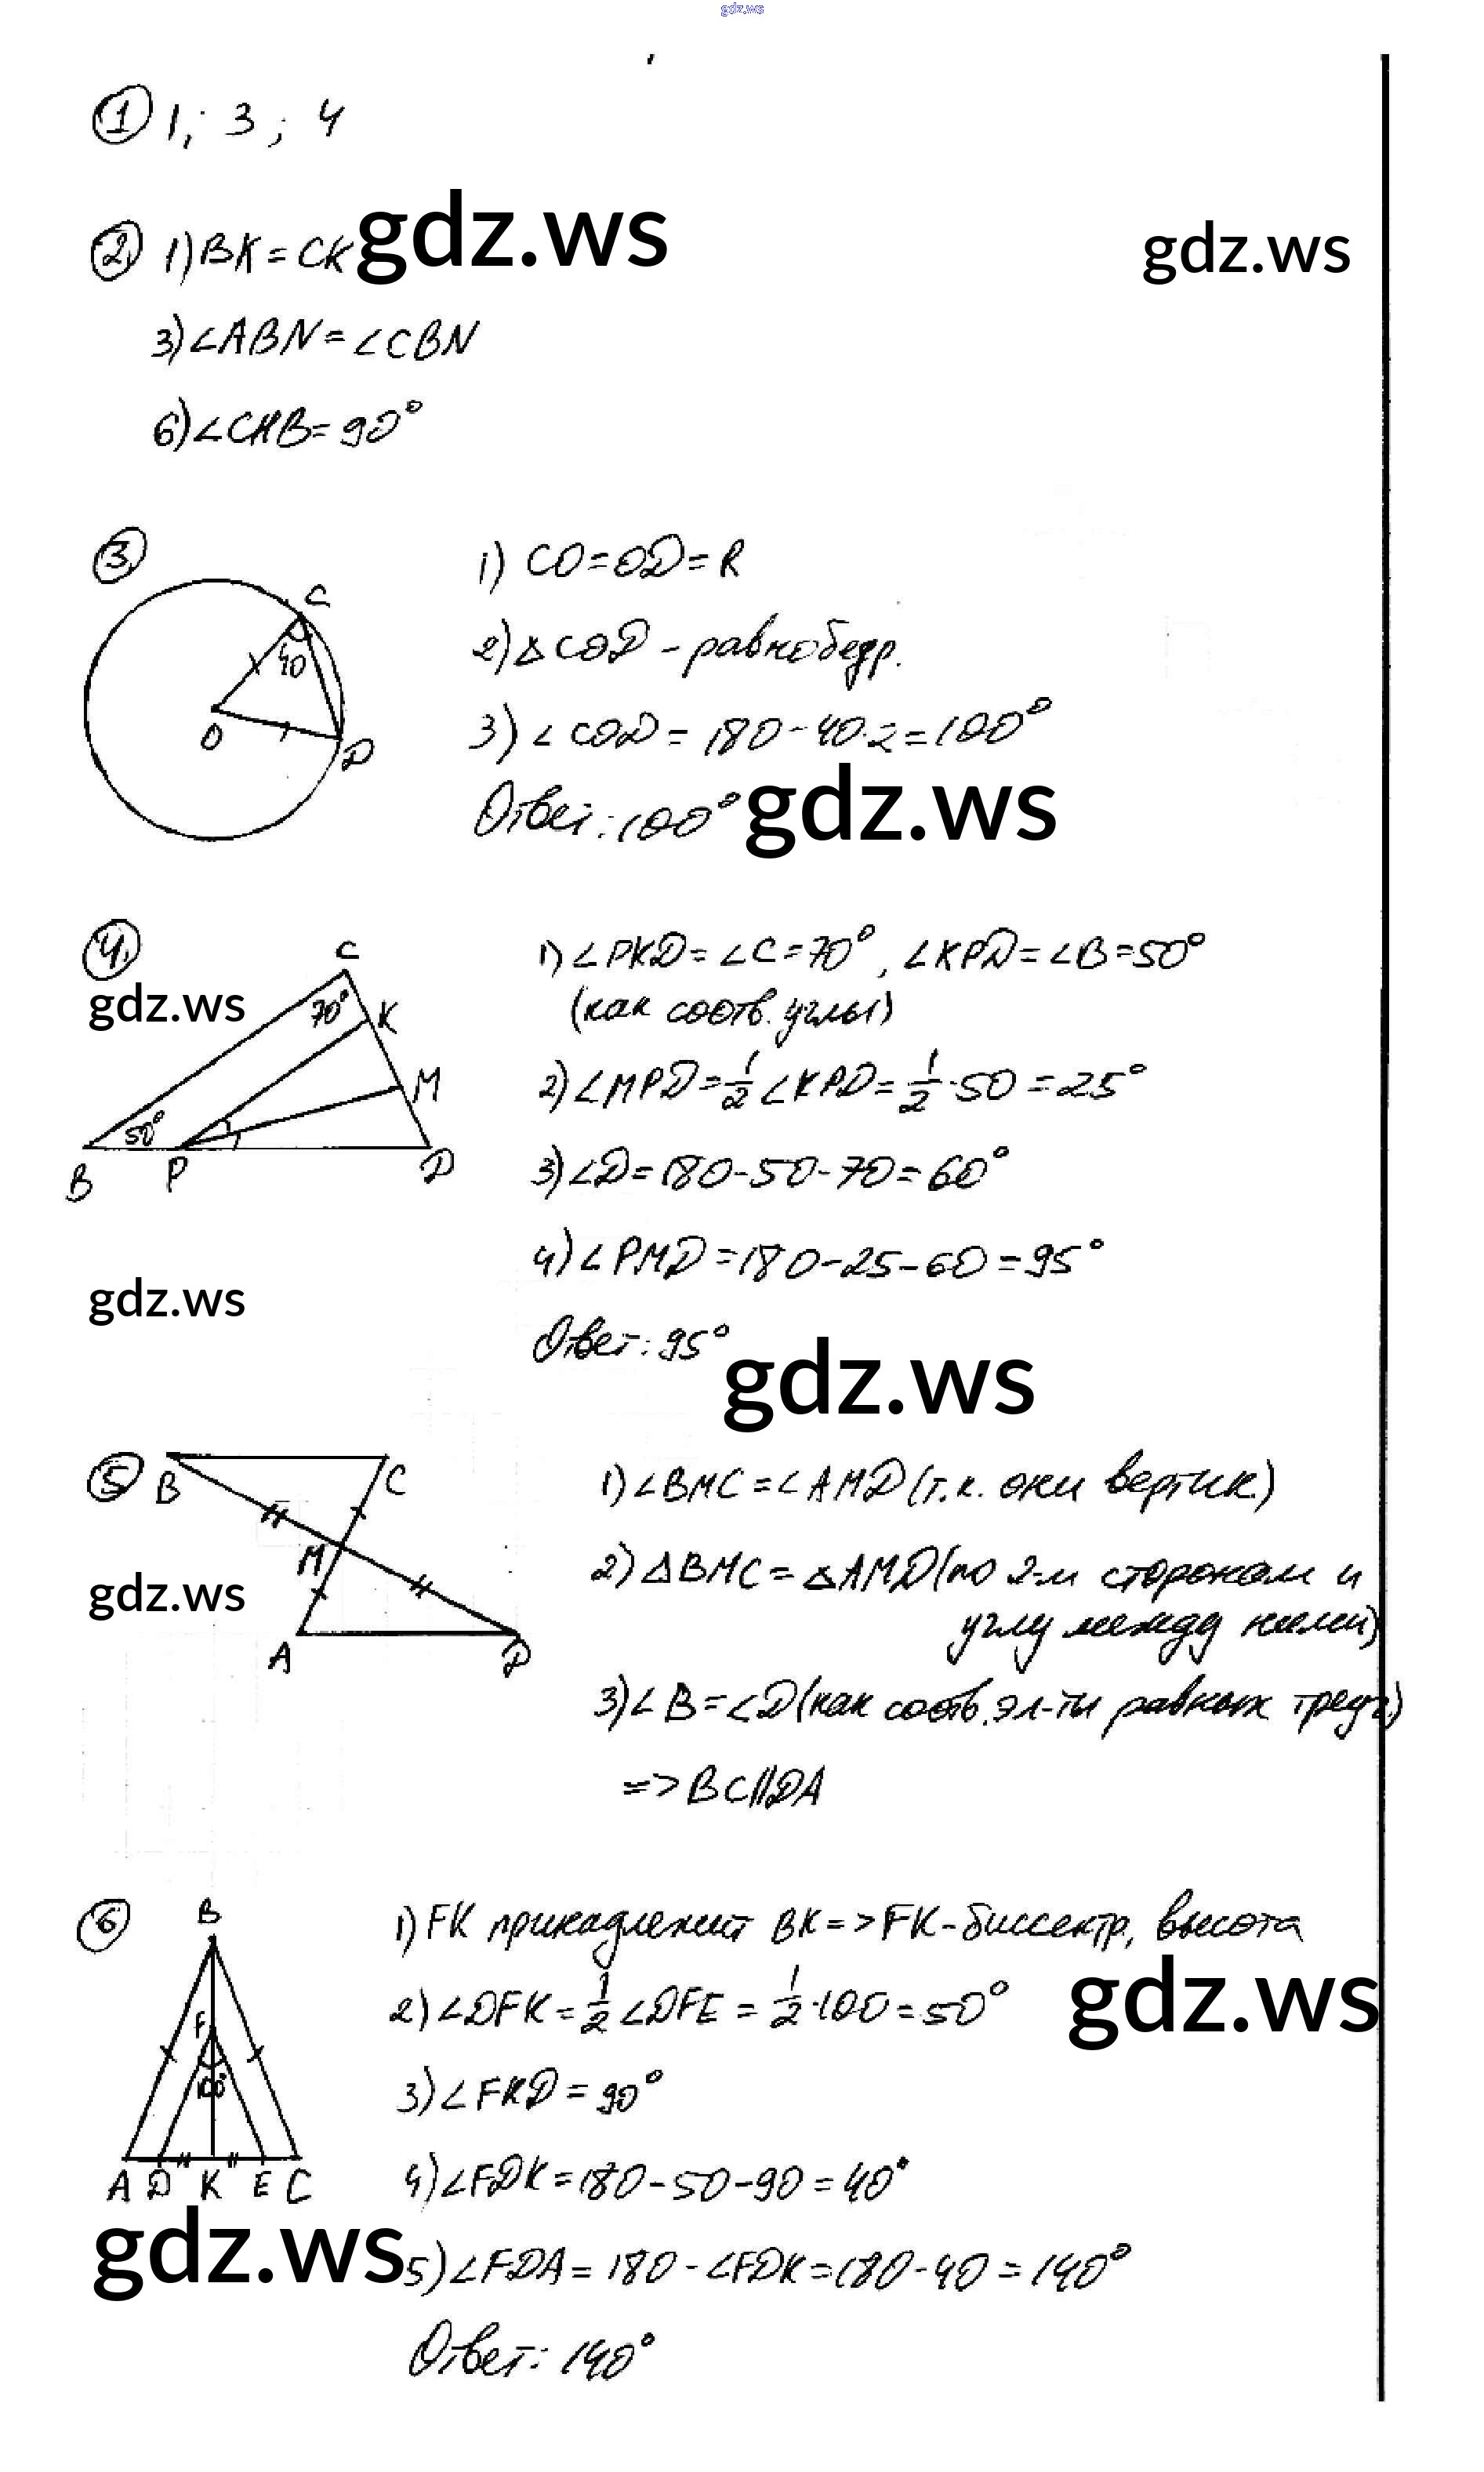 gdz.ws
① 1; 3; 4
② 1) BK = CK gdz.ws gdz.ws
3) ∠ABN = ∠CBN
6) ∠CHB = 90°
③ 1) CO = OD = R
C
40
O
D
2) △COD - равнобедр.
3) ∠COD = 180 - 40·2 = 100°
Ответ: 100° gdz.ws
④ 1) ∠PKD = ∠C = 70°, ∠KPD = ∠B = 50°
(как соотв. углы)
gdz.ws
C
70°
K
M
50°
B P D
2) ∠MPD = 1/2 ∠KPD = 1/2·50 = 25°
3) ∠D = 180 - 50 - 70 = 60°
4) ∠PMD = 180 - 25 - 60 = 95°
gdz.ws
Ответ: 95° gdz.ws
⑤ 1) ∠BMC = ∠AMD (т.к. они вертик.)
B C
M
A D
gdz.ws
2) △BMC = △AMD (по 2-м сторонам и
углу между ними)
3) ∠B = ∠D (как соотв. эл-ты равных треуг.)
=> BC || DA
⑥ 1) FK принадлежит BK => FK - биссектр., высота
B
F
100°
A D K E C
2) ∠DFK = 1/2 ∠DFE = 1/2·100 = 50° gdz.ws
3) ∠FKD = 90°
4) ∠FDK = 180 - 50 - 90 = 40°
gdz.ws
5) ∠FDA = 180 - ∠FDK = 180 - 40 = 140°
Ответ: 140°